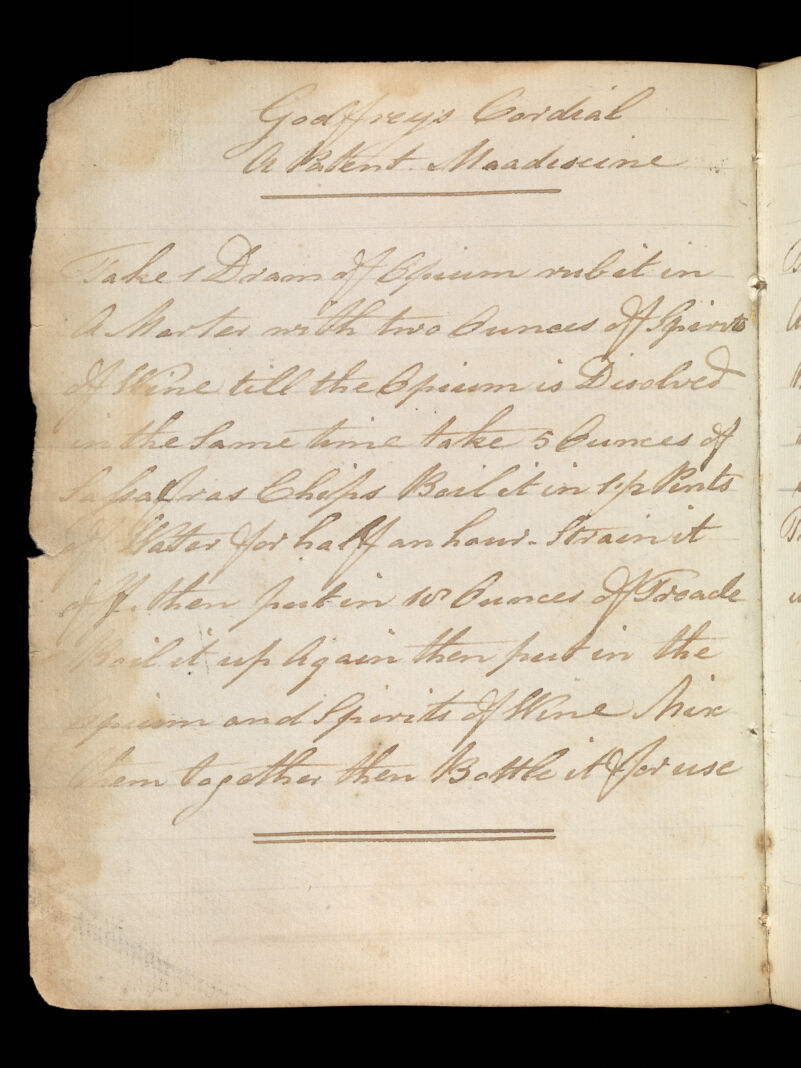 Godffreys Cordial
A Patent Maadiscine
Take 1 Dram off Opium rub it in
A Morter with two Ounces off Spirits
off Wine till the Opium is Disolved
in the Same time take 5 Ounces off
Sasafras Chips Boil it in Pints
off Water ffor halff an hour. Strain it
off. then put in Ounces off Treacle
Boil it up Again then put in the
Opium and Spirits off Wine Mix
them together then Bottle it ffor use